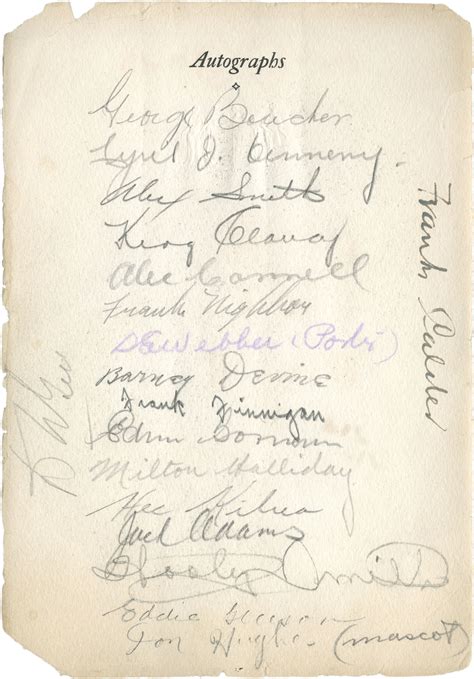 Autographs
George Boucher
Cyril J. Denneny.
Alex Smith
King Clancy
Alec Connell
Frank Nighbor
Webber
Barney Devine
Frank Finnigan
Edwin Gorman
Milton Halliday
Hec Kilrea
Jack Adams
Hooley Smith
Eddie
Jon Hughe (mascot)
Frank Calder